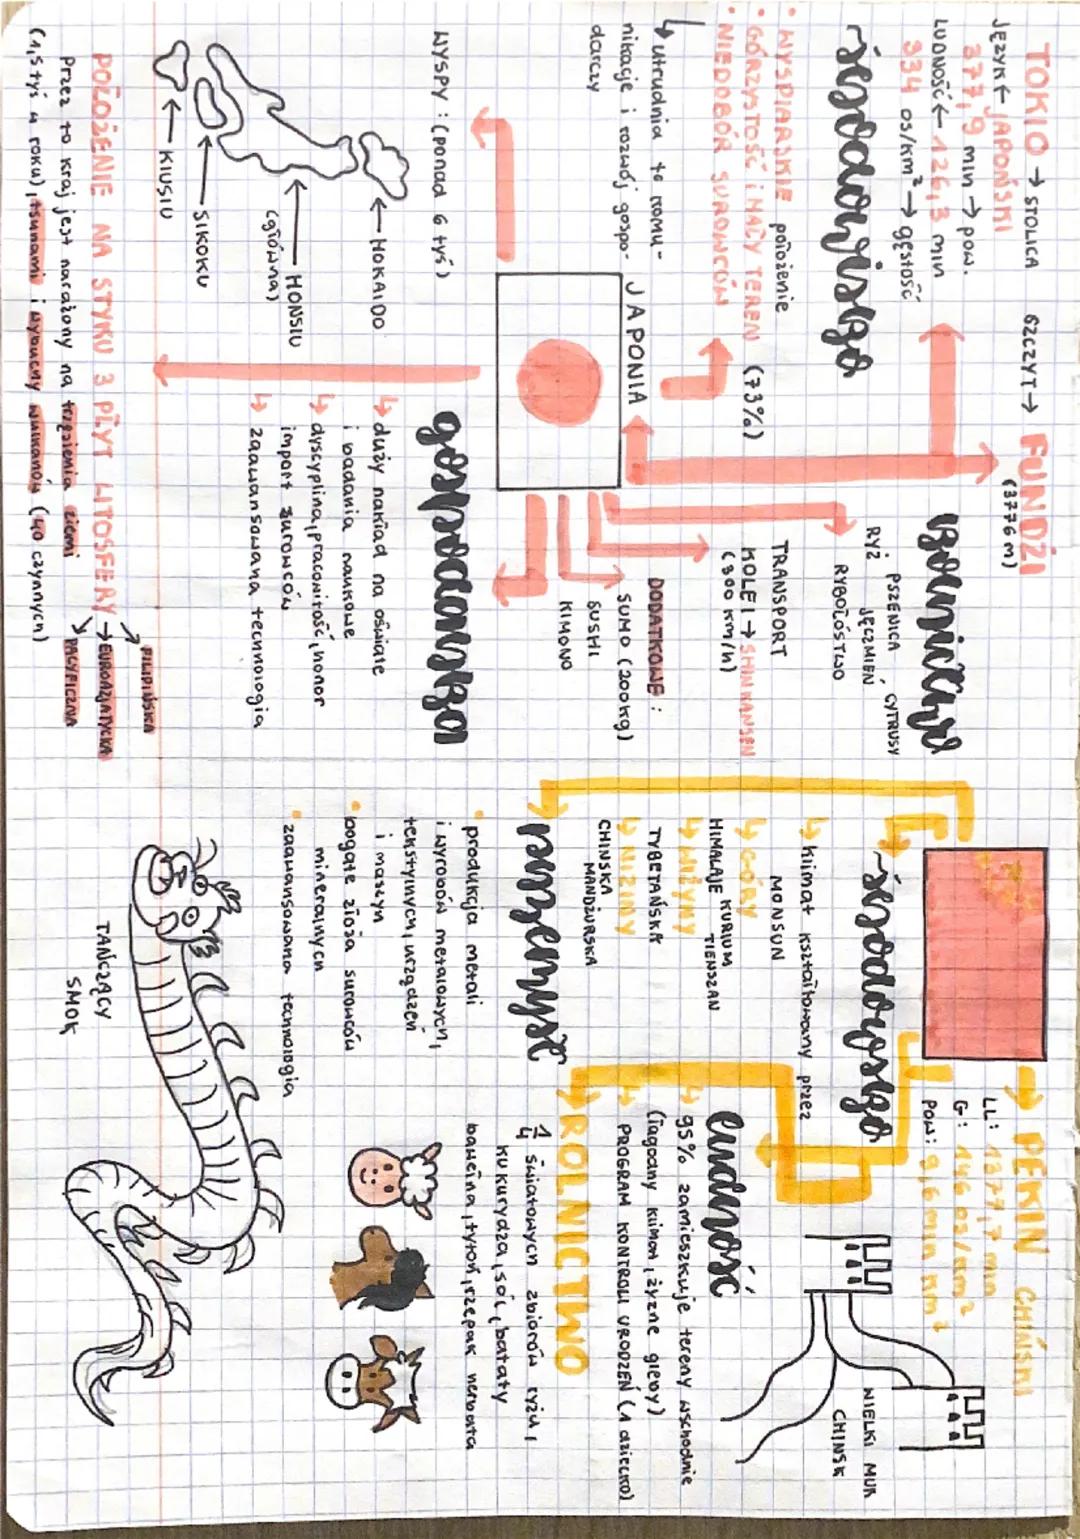 TOKIO → STOLICA
SZCZYT → FUNDŻI
(3776 m)
JĘZYK ← JAPOŃSKI
377,9 mln → pow.
LUDNOŚĆ ← 126,3 mln
334 os/km² → gęstość
środowisko
• WYSPIARSKIE położenie
• GÓRZYSTOŚĆ i MAŁY TEREN (73%)
• NIEDOBÓR SUROWCÓW
↳ utrudnia to komu-
nikację i rozwój gospo-
darczy
JAPONIA
WYSPY: (ponad 6 tyś)
← HOKAIDO
← HONSIU
(główna)
← SIKOKU
← KIUSIU
rolnictwo
RYŻ PSZENICA, CYTRUSY
JĘCZMIEŃ
RYBOŁÓSTWO
TRANSPORT
KOLEI → SHINKANSEN
(300 km/h)
DODATKOWE:
SUMO (200kg)
SUSHI
KIMONO
gospodarka
↳ duży nakład na oświatę
i badania naukowe
↳ dyscyplina, pracowitość, honor
import surowców
↳ zaawansowana technologia
POŁOŻENIE NA STYKU 3 PŁYT LITOSFERY
FILIPIŃSKA
→ EUROAZJATYCKA
PACYFICZNA
Przez to kraj jest narażony na trzęsienia ziemi
(1,5 tyś w roku), tsunami i wybuchy wulkanów (40 czynnych)
→ PEKIN CHIŃSKI
LL: 1377,7 mln
G: 146 os/km²
POW: 9,6 mln km²
WIELKI MUR
CHIŃSK
środowisko
↳ klimat kształtowany przez
MONSUN
↳ GÓRY
HIMALAJE KURIUM
TIENSZAN
↳ WYŻYNY
TYBETAŃSKA
↳ NIZINY
CHIŃSKA
MANDŻURSKA
ludność
↳ 95% zamieszkuje tereny wschodnie
(łagodny klimat, żyzne gleby)
↳ PROGRAM KONTROLI URODZEŃ (1 dziecko)
przemysł
• produkcja metali
i wyrobów metalowych,
tekstylnych, urządzeń
i maszyn
• bogate złoża surowców
mineralnych
• zaawansowana technologia
→ ROLNICTWO
1/4 światowych zbiorów ryżu,
kukurydza, soi, bataty
bawełna, tytoń, rzepak herbata
TAŃCZĄCY
SMOK